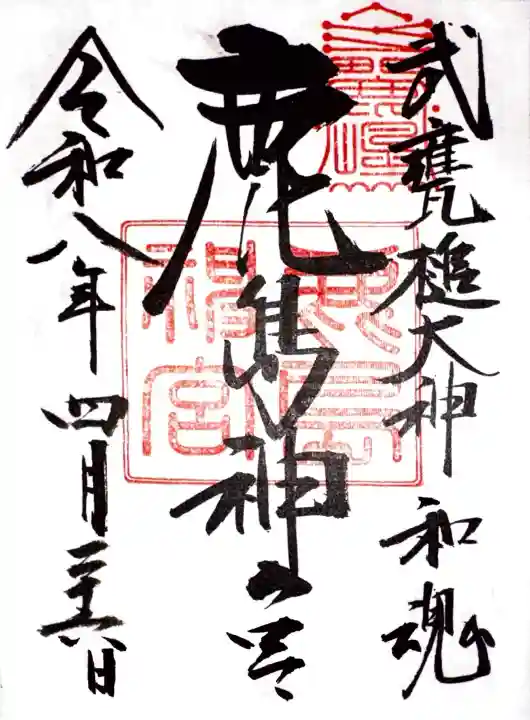 武甕槌大神 和魂
鹿島神宮
令和八年四月二十六日
鹿島神宮